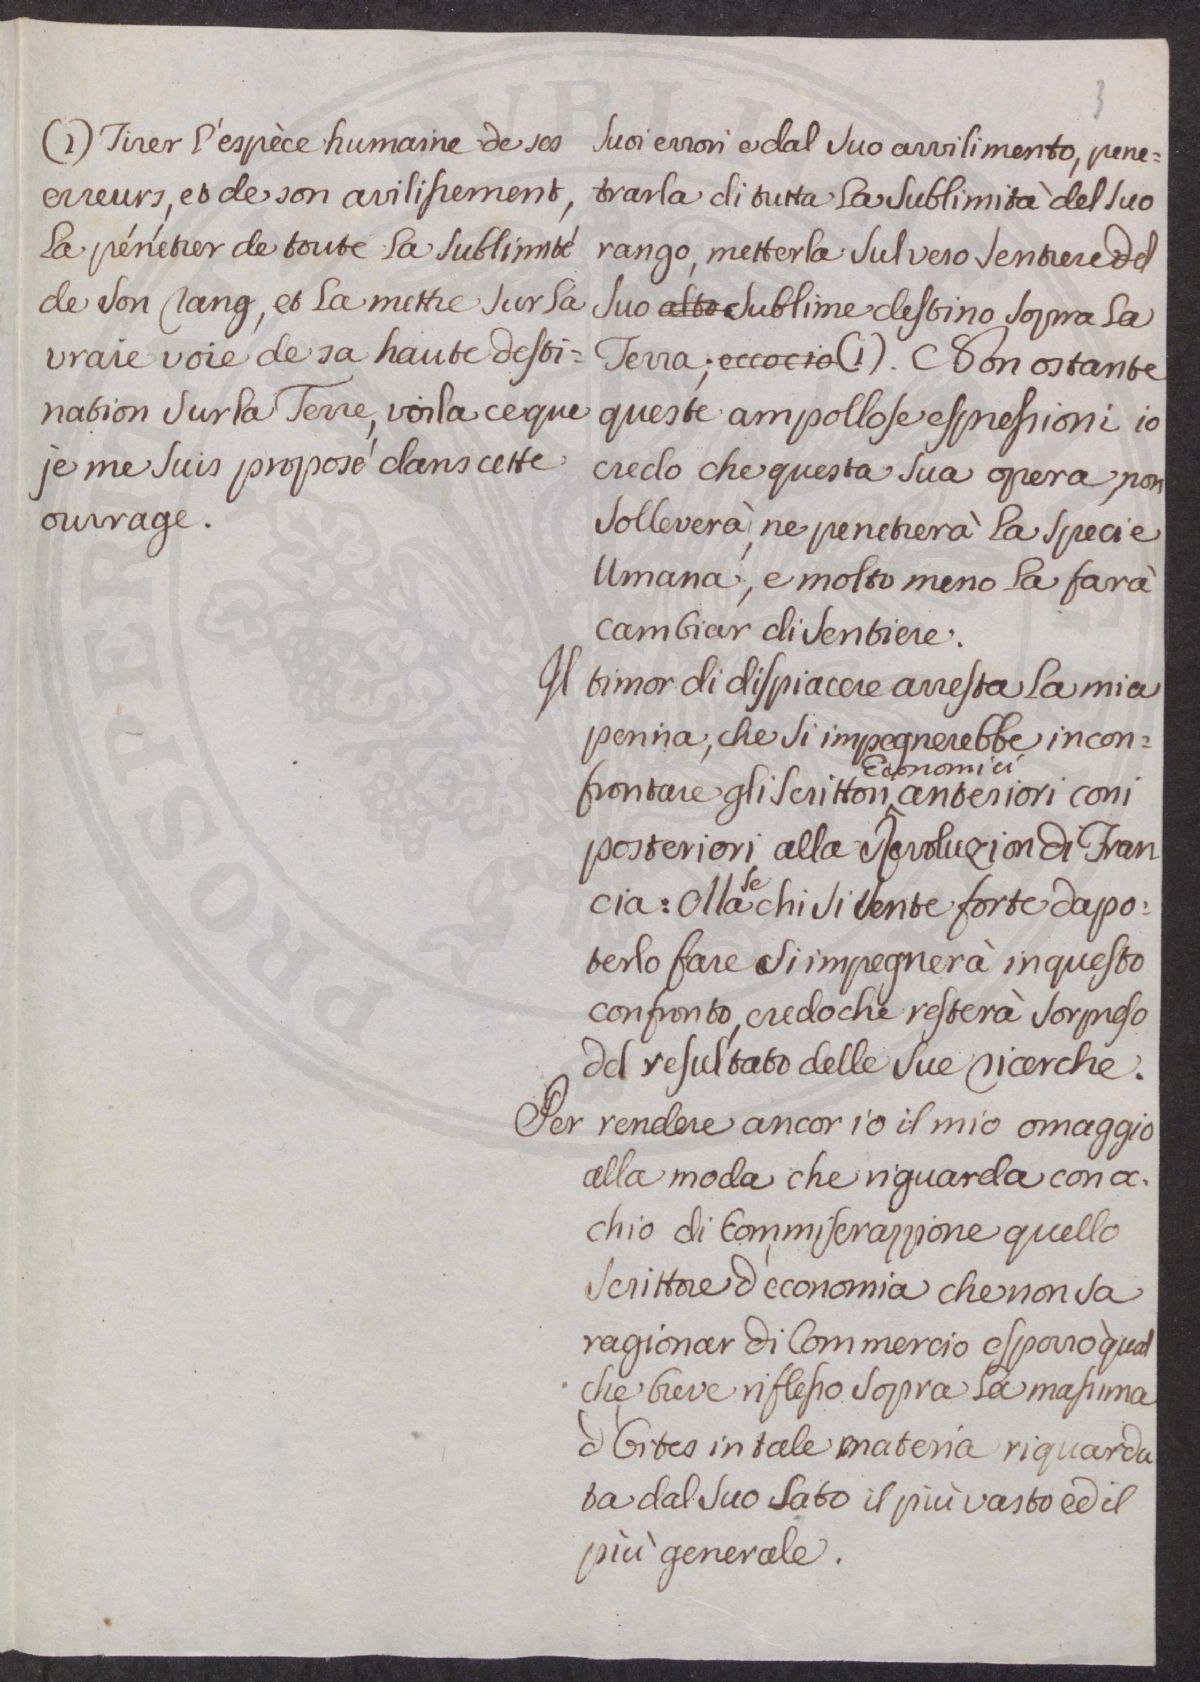 3
(1) Tirer l'espèce humaine de ses
erreurs, et de son avilissement,
la pénétrer de toute la sublimité
de son rang, et la mettre sur la
vraie voie de sa haute desti=
nation sur la Terre, voila ce que
je me suis proposé dans cette
ouvrage.
suoi errori e dal suo avvilimento, pene=
trarla di tutta la sublimità del suo
rango, metterla sul vero sentiere del
suo alto sublime destino sopra la
Terra; eccocio (1). Non ostante
queste ampollose espressioni io
credo che questa sua opera non
solleverà, ne penetrerà la specie
Umana, e molto meno la farà
cambiar di sentiere.
Il timor di dispiacere arresta la mia
penna, che si impegnerebbe in con=
frontare gli scrittori Economici anteriori coni
posteriori alla Revoluzion di Fran
cia: Ma se chi si sente forte da po=
terlo fare si impegnerà in questo
confronto, credo che resterà sorpreso
del resultato delle sue ricerche.
Per rendere ancor io il mio omaggio
alla moda che riguarda con oc.
chio di Commiserazzione quello
scrittore d'economia che non sa
ragionar di Commercio esporrò qual
che breve riflesso sopra la massima
d'Gites in tale materia riguarda
ta dal suo lato il più vasto ed il
più generale.
PROSPERU
UBLI